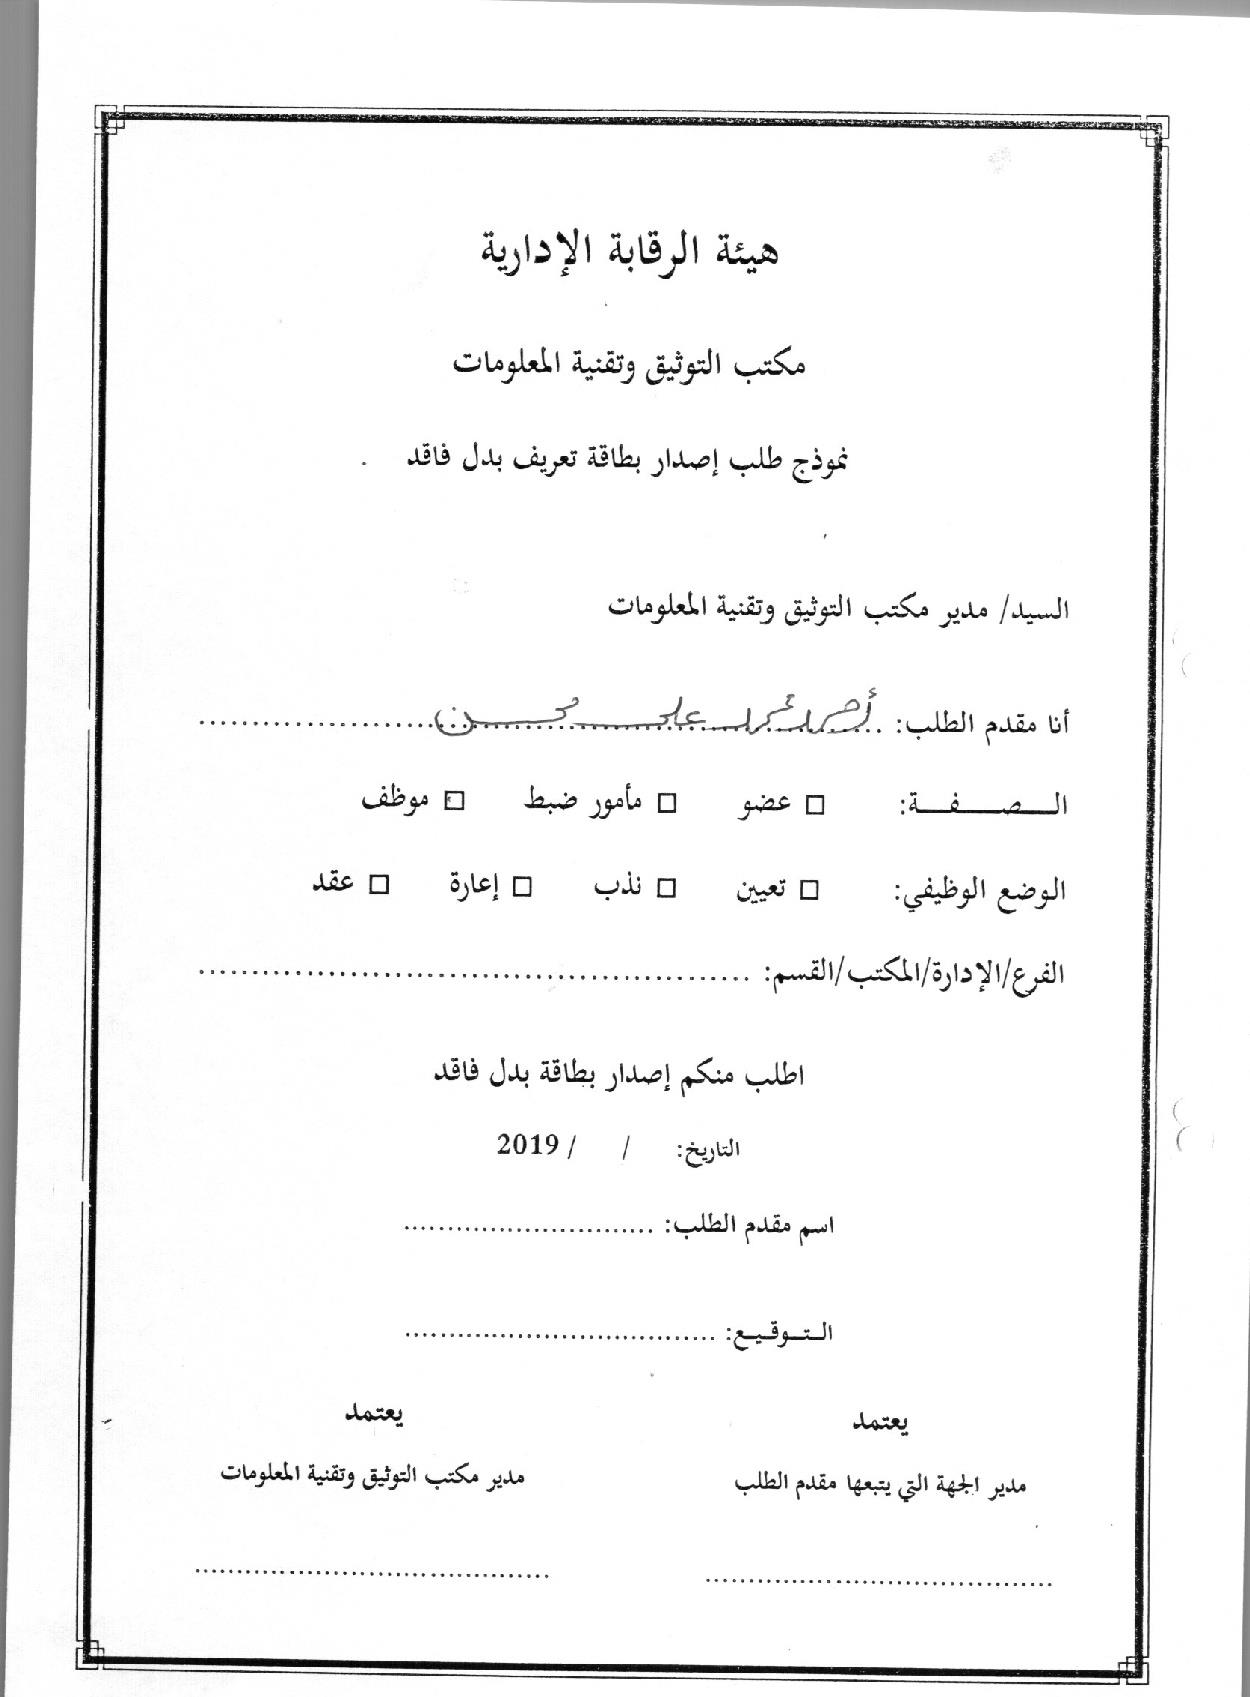 هيئة الرقابة الإدارية
مكتب التوثيق وتقنية المعلومات
نموذج طلب إصدار بطاقة تعريف بدل فاقد .
السيد/ مدير مكتب التوثيق وتقنية المعلومات
أنا مقدم الطلب: أحمد محمد علي محسن
الـــصـــفـــة: □ عضو □ مأمور ضبط □ موظف
الوضع الوظيفي: □ تعيين □ نذب □ إعارة □ عقد
الفرع/الإدارة/المكتب/القسم: ..................................................
اطلب منكم إصدار بطاقة بدل فاقد
التاريخ: / / 2019
اسم مقدم الطلب: ............................
الـتـوقـيـع: ...................................
يعتمد يعتمد
مدير الجهة التي يتبعها مقدم الطلب مدير مكتب التوثيق وتقنية المعلومات
........................................ ........................................